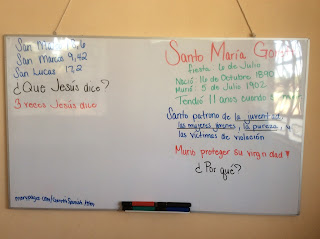 San Marcos 9,42
San Lucas 17,2
¿Que Jesús dice?
3 veces Jesús dice
Santo María
fiesta 6 de Julio
Nació 16 de Octubre 1890
Murió 5 de Julio 1902
Tendió 11 años cuando
Santo patrono de la juventud,
las mujeres jovenes, la pureza, y
las víctimas de violación
Murio proteger su virginidad
¿Por qué?